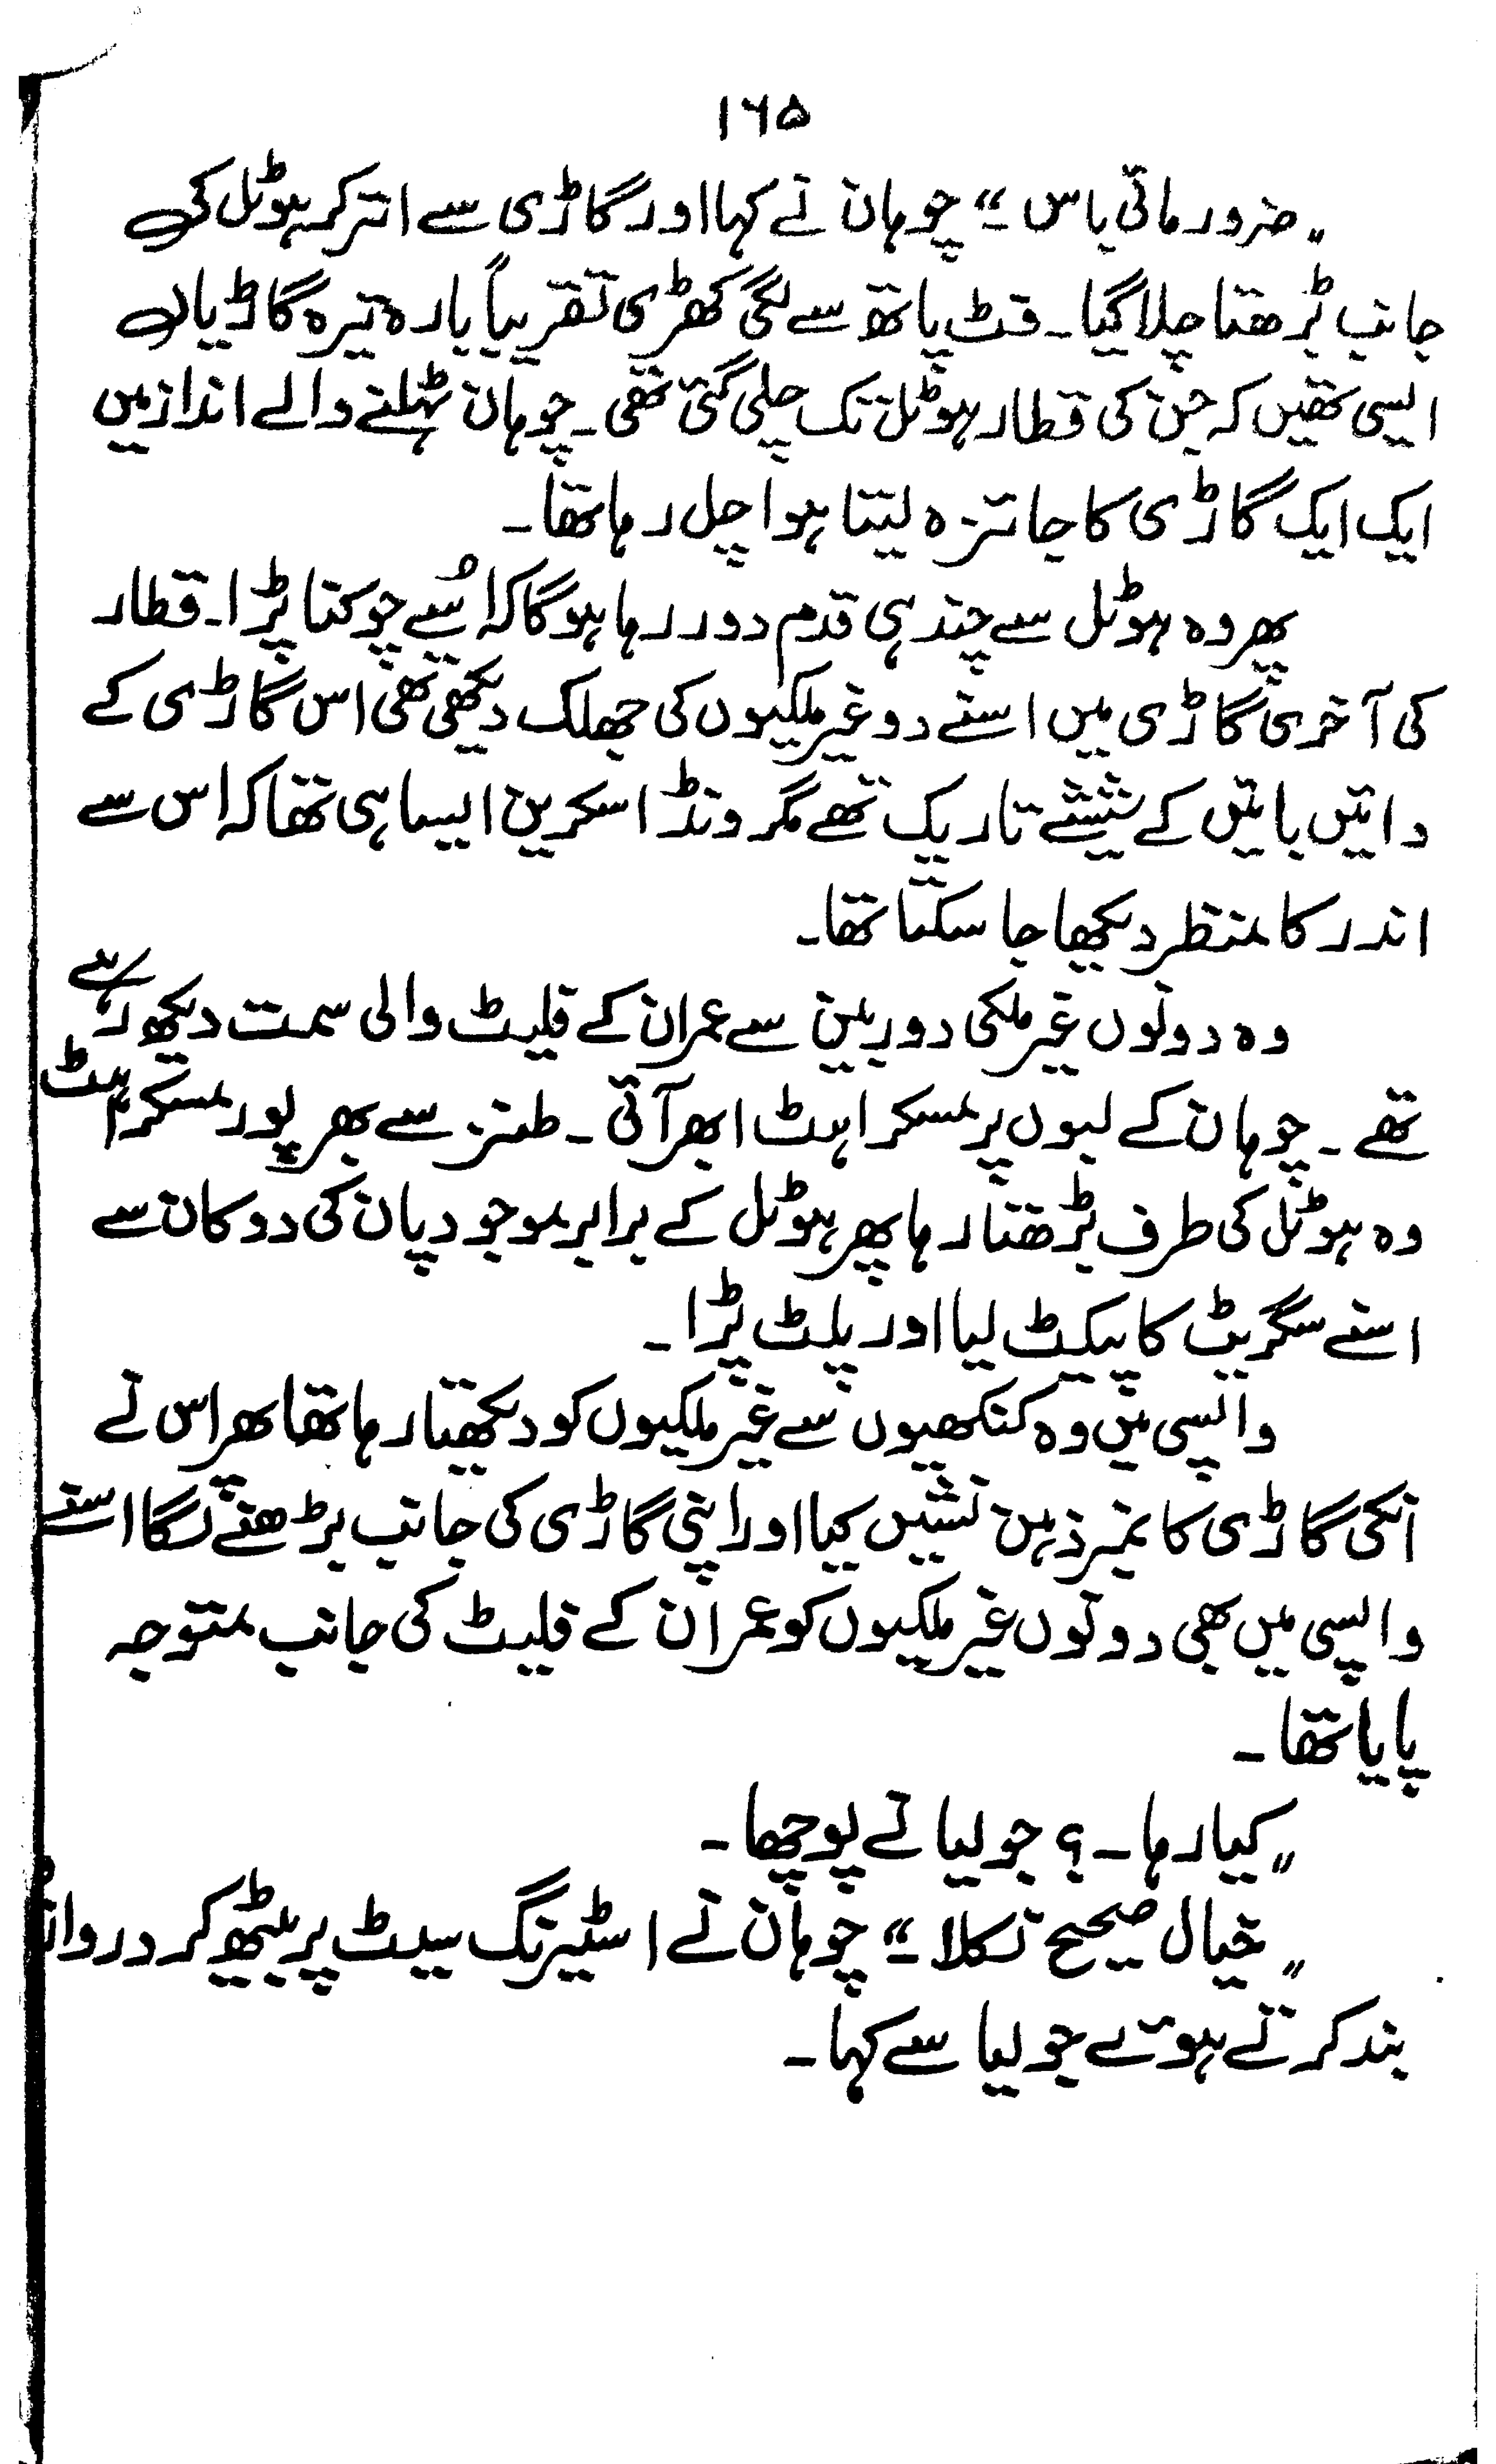 ۱۶۵
"ضرور مائی باس۔" چوہان نے کہا اور گاڑی سے اتر کر ہوٹل کی
جانب بڑھتا چلا گیا۔ فٹ پاتھ سے لگی کھڑی تقریباً بارہ تیرہ گاڑیاں
ایسی تھیں کہ جن کی قطار ہوٹل تک چلی گئی تھی۔ چوہان ٹہلنے والے انداز میں
ایک ایک گاڑی کا جائزہ لیتا ہوا چل رہا تھا۔
پھر وہ ہوٹل سے چند ہی قدم دور رہا ہوگا کہ اُسے چونکنا پڑا۔ قطار
کی آخری گاڑی میں اسنے دو غیر ملکیوں کی جھلک دیکھی تھی اس گاڑی کے
دائیں بائیں کے شیشے تاریک تھے مگر ونڈ اسکرین ایسا ہی تھا کہ اس سے
اندر کا منظر دیکھا جا سکتا تھا۔
وہ دونوں غیر ملکی دوربین سے عمران کے فلیٹ والی سمت دیکھ رہے
تھے۔ چوہان کے لبوں پر مسکراہٹ ابھر آئی۔ طنز سے بھرپور مسکراہٹ
وہ ہوٹل کی طرف بڑھتا رہا پھر ہوٹل کے برابر موجود پان کی دوکان سے
اسنے سگریٹ کا پیکٹ لیا اور پلٹ پڑا۔
واپسی میں وہ کنکھیوں سے غیر ملکیوں کو دیکھتا رہا تھا پھر اس نے
انکی گاڑی کا نمبر ذہن نشیں کیا اور اپنی گاڑی کی جانب بڑھنے لگا اسنے
واپسی میں بھی دونوں غیر ملکیوں کو عمران کے فلیٹ کی جانب متوجہ
پایا تھا۔
"کیا رہا۔؟ جولیا نے پوچھا۔
"خیال صحیح نکلا۔" چوہان نے اسٹیرنگ سیٹ پر بیٹھ کر
بند کرتے ہوئے جولیا سے کہا۔